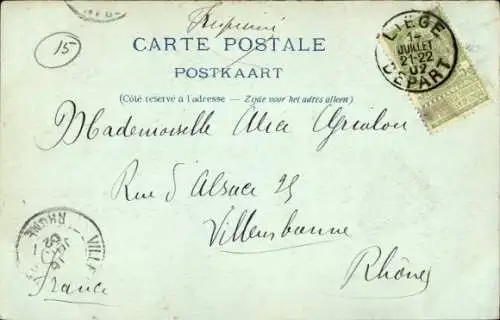 Imprimé
15
CARTE POSTALE
POSTKAART
(Côté réservé à l'adresse — Zijde voor het adres alleen)
LIÈGE
1-
JUILLET
21-22
02
DÉPART
Mademoiselle Alice
Rue d'Alsace 25
Villeurbanne
Rhône
France
VILLE
RHONE
02